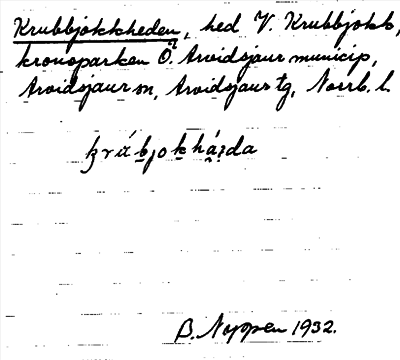 Krubbjokkheden, hed V. Krubbjokk,
kronoparken Ö. Arvidsjaur municip,
Arvidsjaur sn, Arvidsjaur tg, Norrb. l.
B. Noppen 1932.